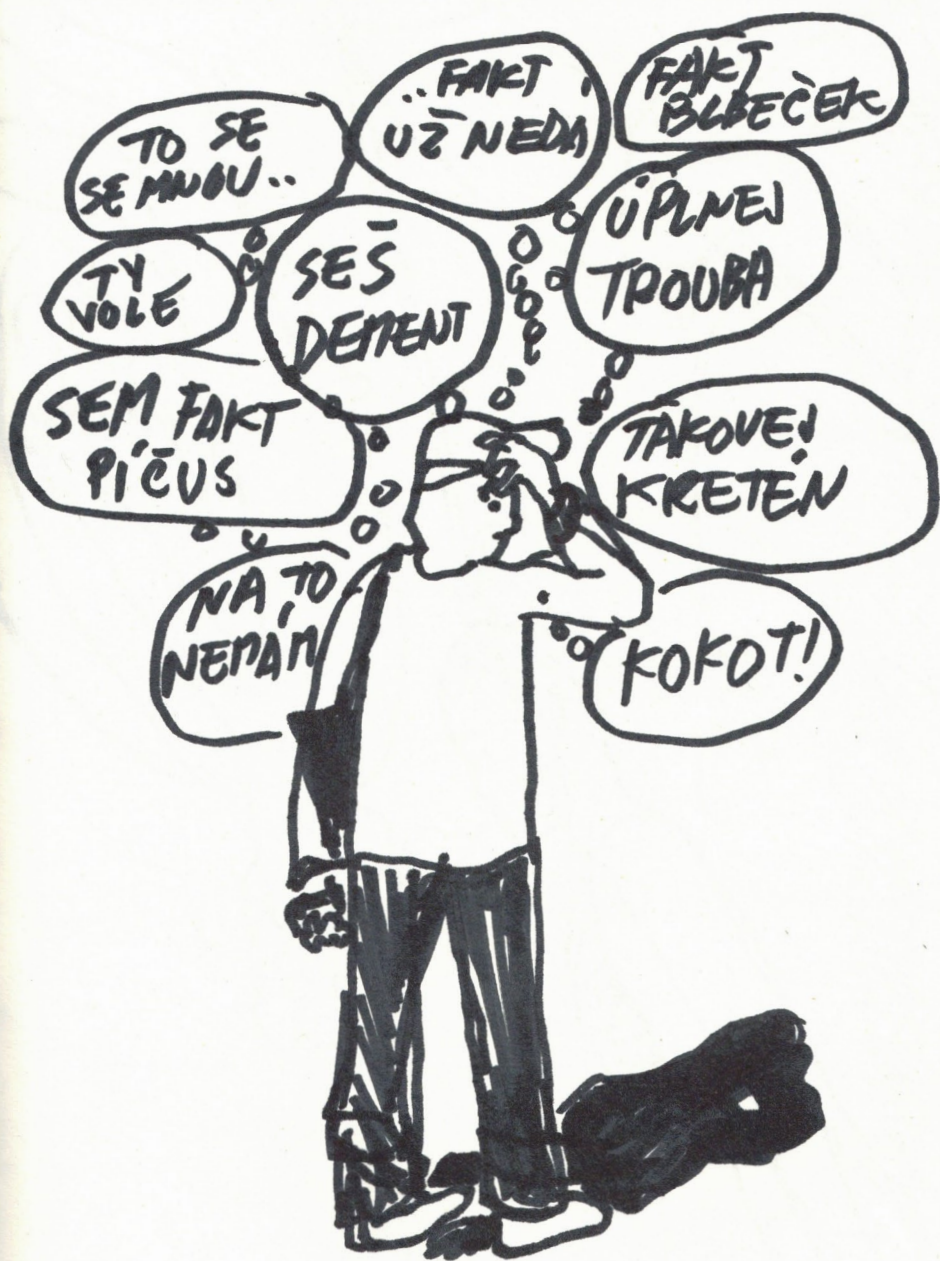 TO SE
SE MNOU..
..FAKT
UŽ NEDÁ
FAKT
BLBEČEK
TY
VOLE
SEŠ
DEMENT
ÚPLNEJ
TROUBA
SEM FAKT
PÍČUS
TAKOVEJ
KRETÉN
NA TO
NEMÁM
KOKOT!